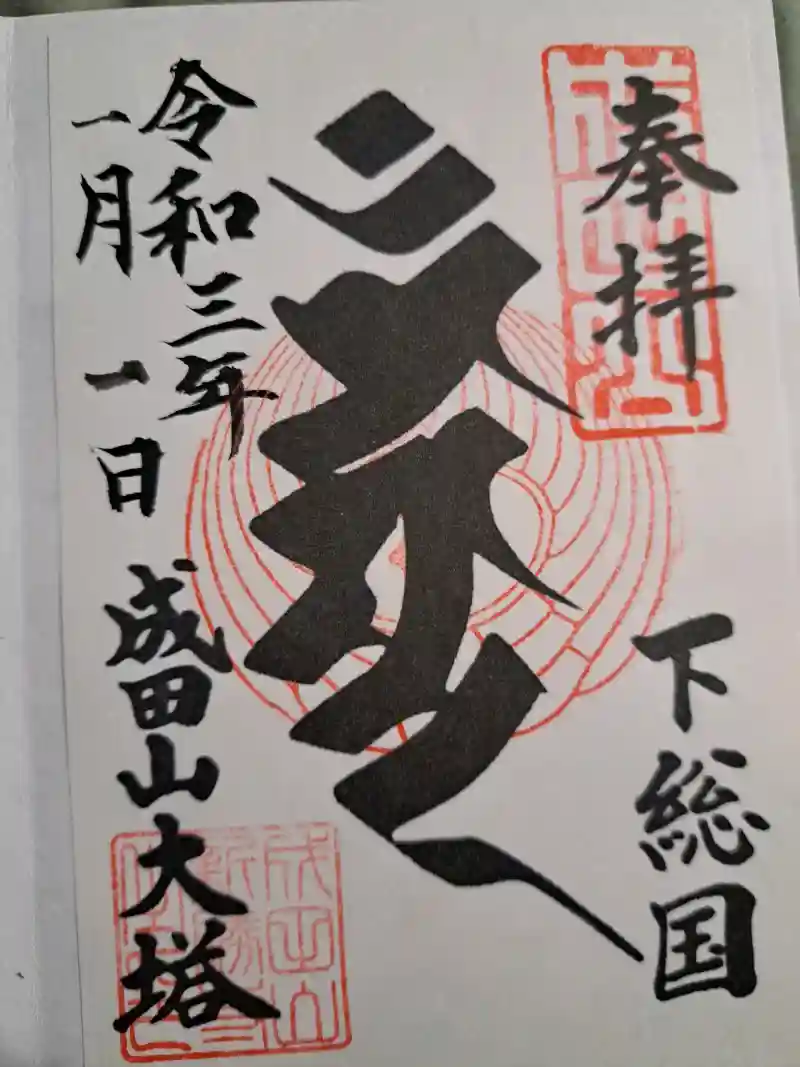 奉拝
下総国
令和三年
一月一日
成田山大塔
成田山